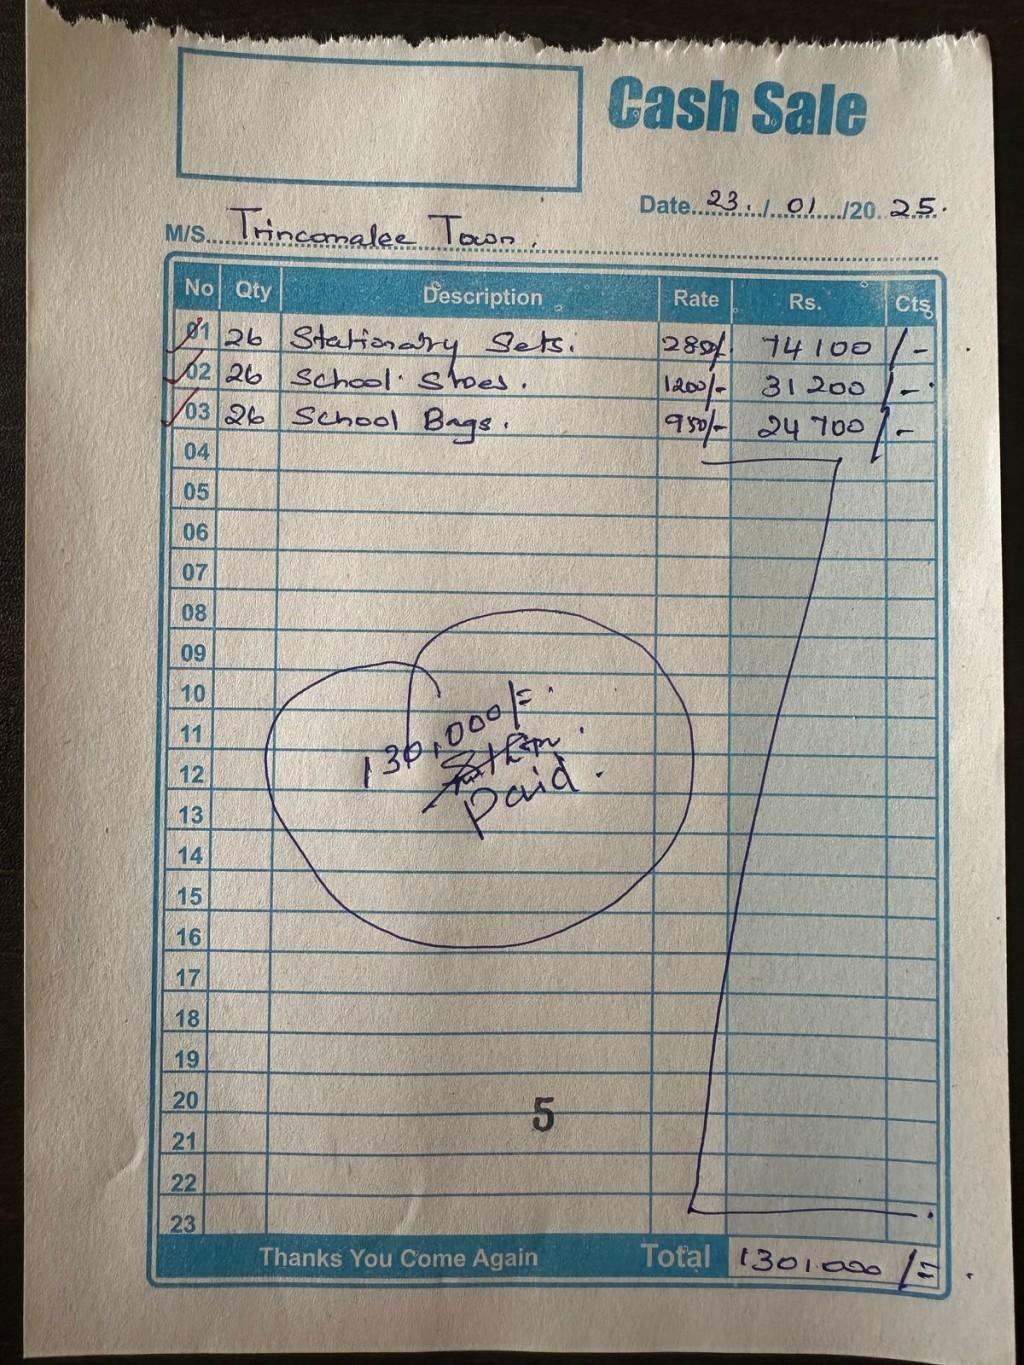 Cash Sale
Date 23. / 01 /20 25.
M/S. Trincomalee Town.
No Qty Description Rate Rs. Cts
01 26 Stationary Sets. 2850/- 74 100 /-
02 26 School Shoes. 1200/- 31 200 /-
03 26 School Bags. 950/- 24 700 /-
04
05
06
07
08
09
10
11
12
13
14
15
16
17
18
19
20
21
22
23
130,000/=
Paid.
5
Thanks You Come Again Total 1301000 /=